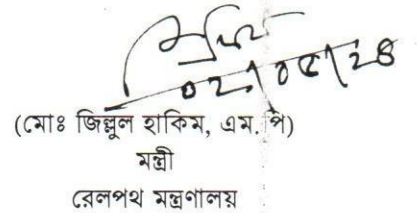 ০২/০৫/২৪
(মোঃ জিল্লুল হাকিম, এম. পি)
মন্ত্রী
রেলপথ মন্ত্রণালয়